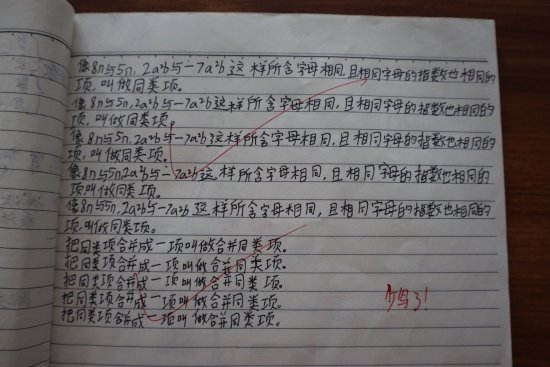 像8n与5n, 2a²b与-7a²b这样所含字母相同, 且相同字母的指数也相同的
项, 叫做同类项。
像8n与5n, 2a²b与-7a²b这样所含字母相同, 且相同字母的指数也相同的
项, 叫做同类项。
像8n与5n, 2a²b与-7a²b这样所含字母相同, 且相同字母的指数也相同的
项, 叫做同类项。
像8n与5n, 2a²b与-7a²b这样所含字母相同, 且相同字母的指数也相同的
项, 叫做同类项。
像8n与5n, 2a²b与-7a²b这样所含字母相同, 且相同字母的指数也相同的
项, 叫做同类项。
把同类项合并成一项叫做合并同类项。
把同类项合并成一项叫做合并同类项。
把同类项合并成一项叫做合并同类项。
把同类项合并成一项叫做合并同类项。
把同类项合并成一项叫做合并同类项。